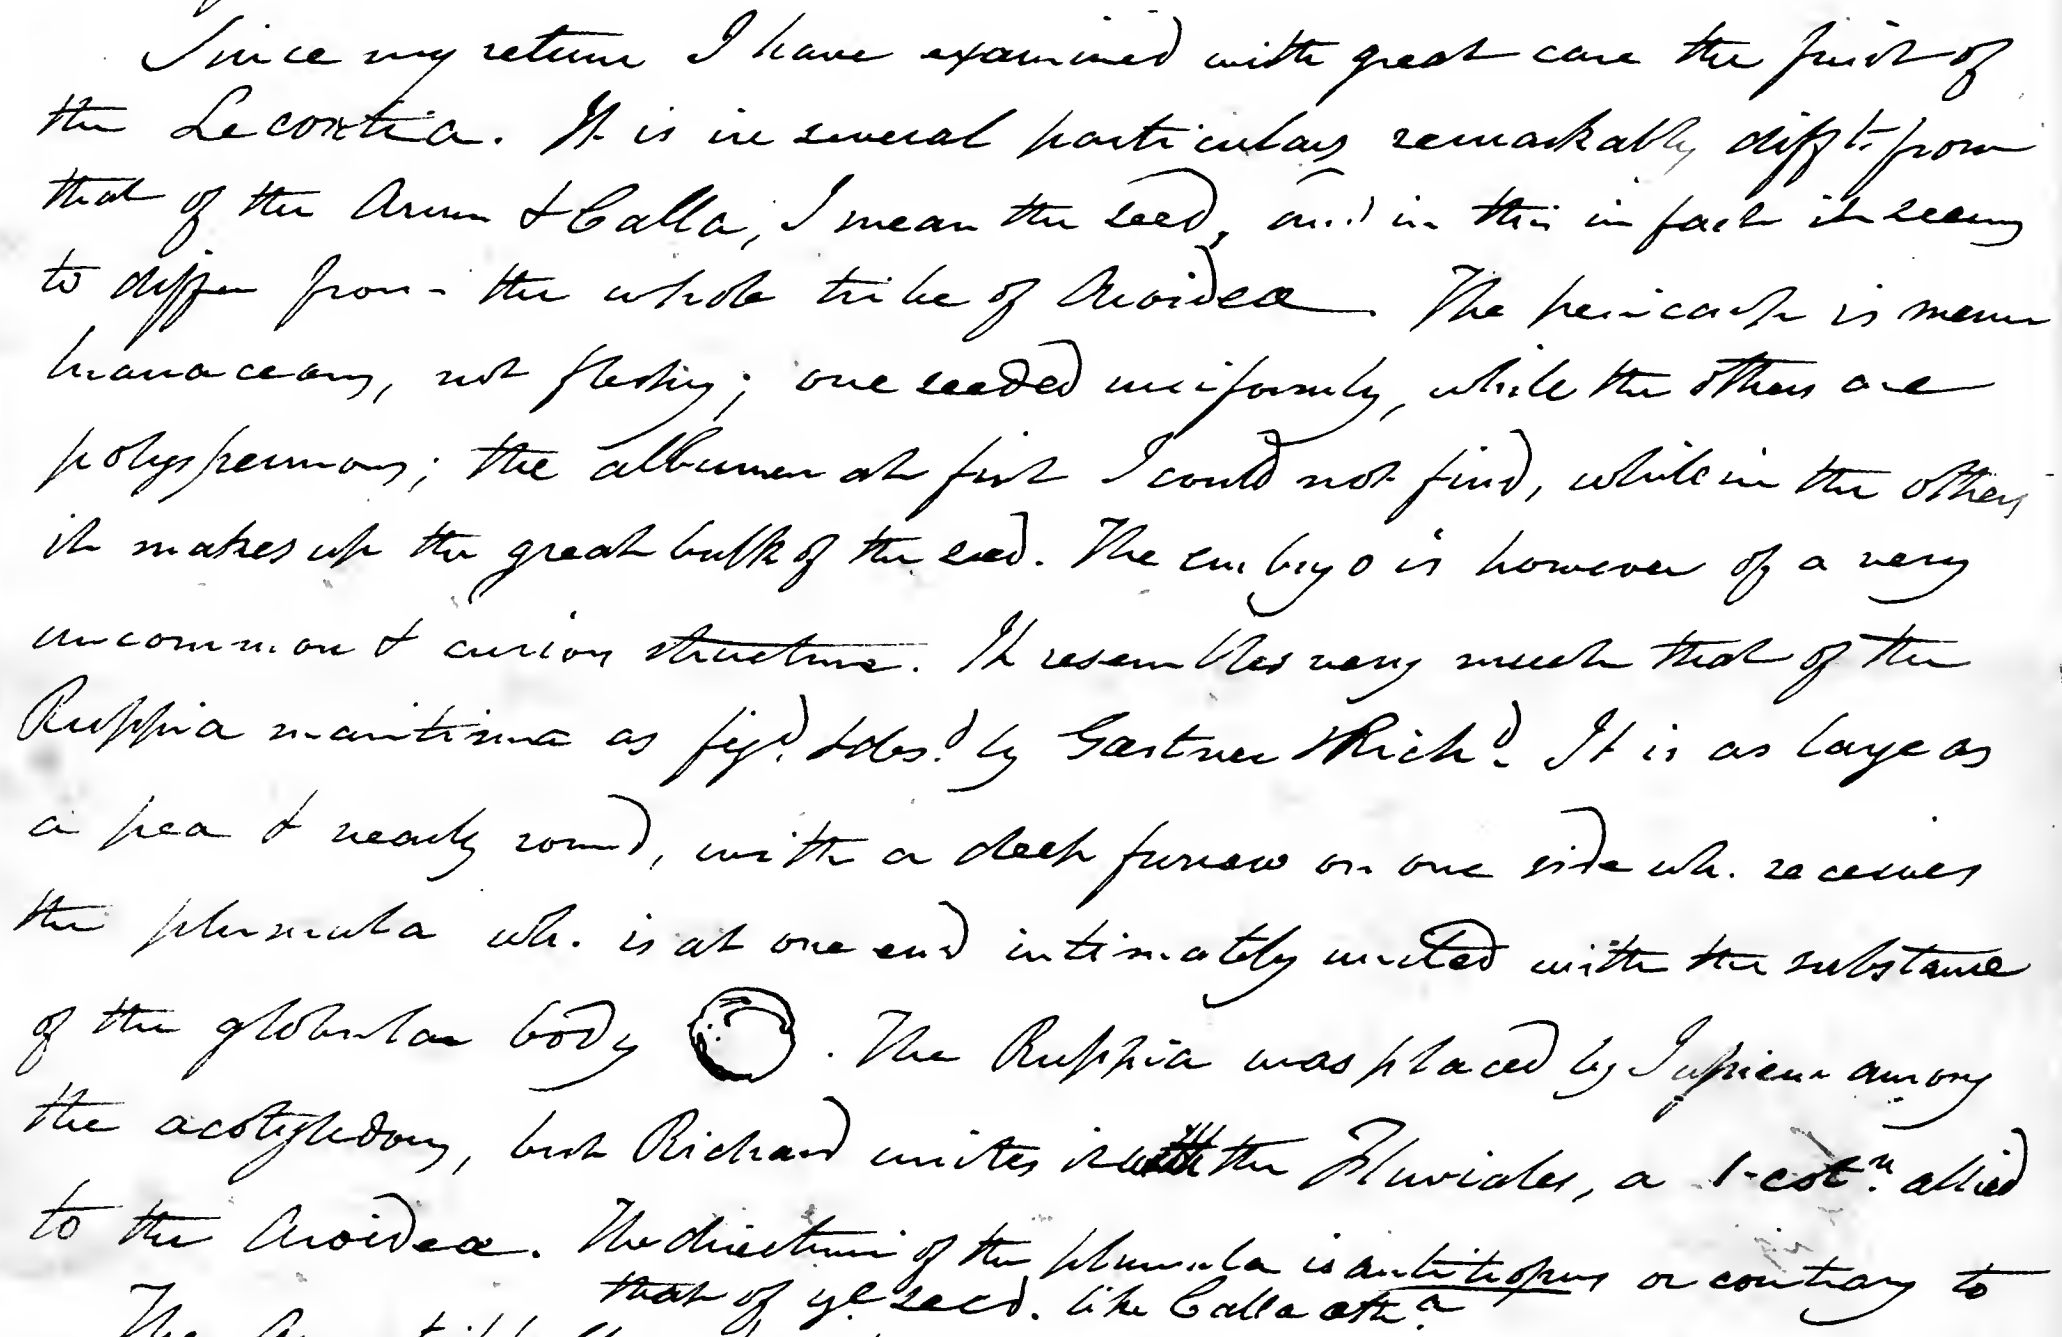 Since my return I have examined with great care the fruit of
the Lecontia. It is in several particulars remarkably difft. from
that of the Arum & Calla, I mean the seed, and in this in fact it seems
to differ from the whole tribe of Aroideæ. The pericarp is mem
branaceous, not fleshy; one seeded uniformly, while the others are
polyspermous; the albumen at first I could not find, while in the others
it makes up the great bulk of the seed. The embryo is however of a very
uncommon & curious structure. It resembles very much that of the
Ruppia maritima as figd. & desd. by Gærtner & Richd. It is as large as
a pea & nearly round, with a deep furrow on one side wh. receives
the plumula wh. is at one end intimately united with the substance
of the globular body . The Ruppia was placed by Jussieu among
the acotyledons, but Richard unites it with the Fluviales, a 1-cotn. allied
to the Aroideæ. The direction of the plumula is antitropous or contrary to
that of ye seed. like Calla
The